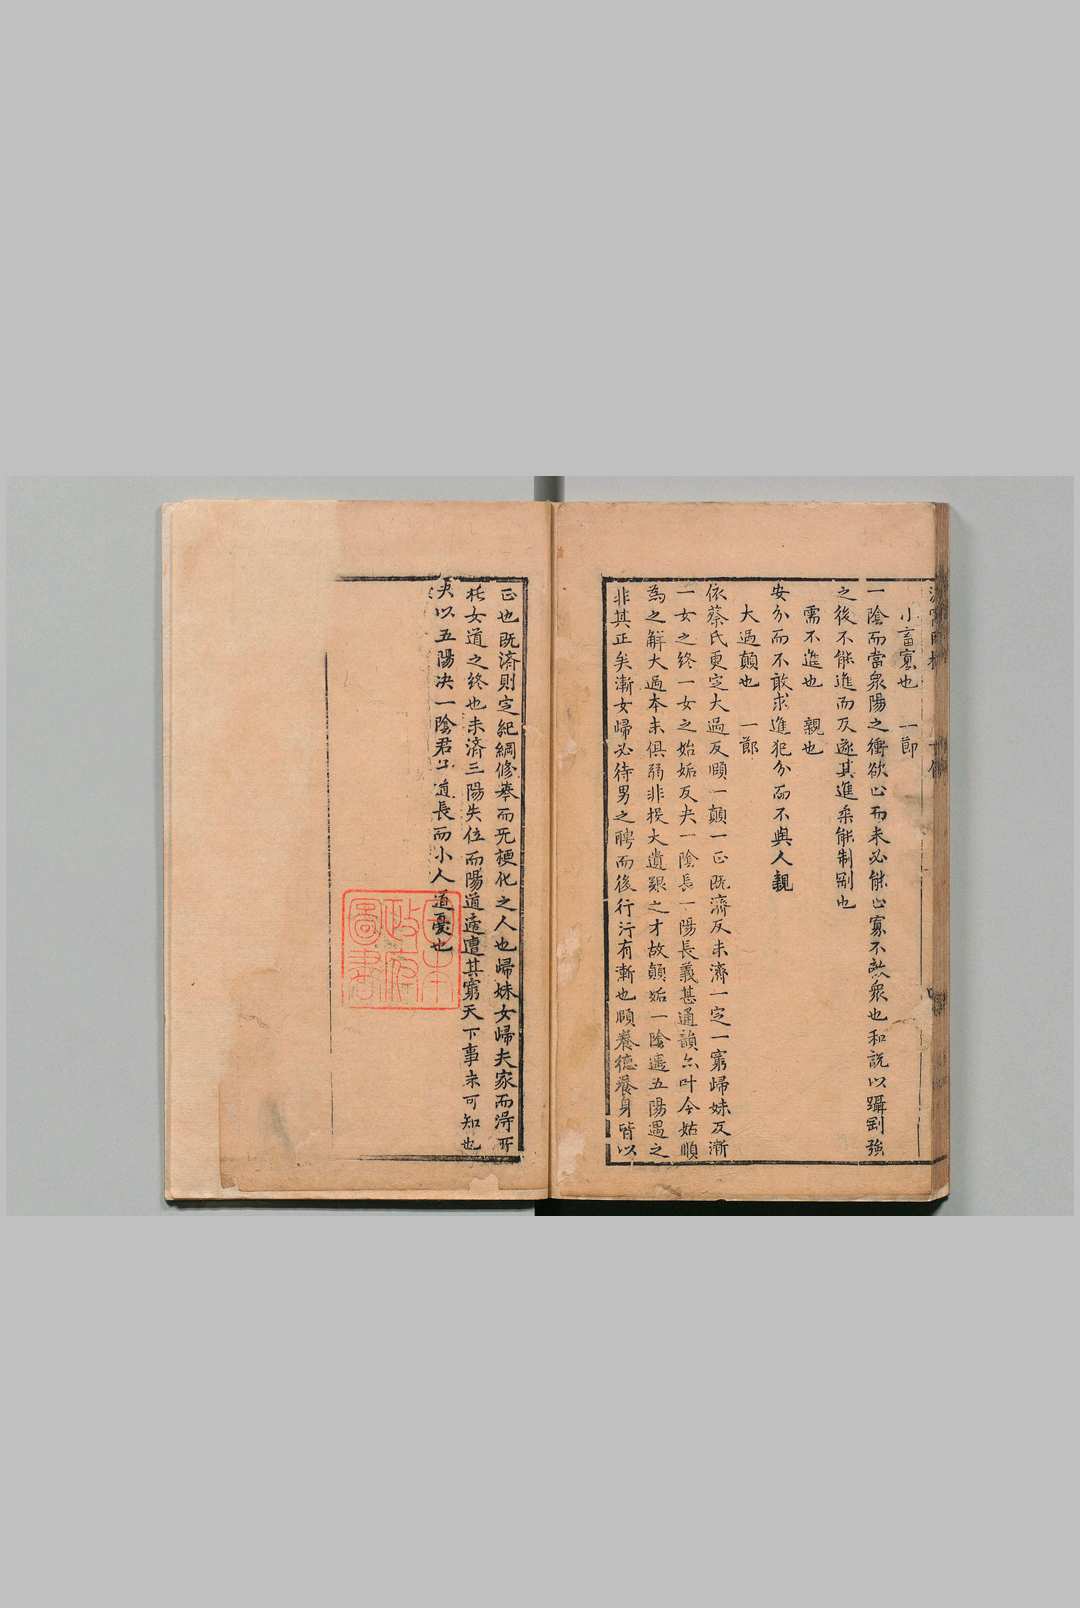 小畜寡也　一節
一陰而當衆陽之衝欲止而未必能止寡不敵衆也和説以躡剛強
之後不能進而反遂其進乘能制剛也
需不進也　親也
安分而不敢求進犯分而不與人親
大過顛也　一節
依蔡氏更定大過反頤一顛一正既濟反未濟一定一窮歸妹反漸
一女之終一女之始姤反夬一陰長一陽長義甚通韻亦叶今姑順
為之解大過本末俱弱非投大遺艱之才故顛姤一陰遇五陽遇之
非其正矣漸女歸必待男之聘而後行行有漸也頤養德養身皆以
正也既濟則定紀綱修舉而无梗化之人也歸妹女歸夫家而得所
女道之終也未濟三陽失位而陽道遠遭其窮天下事未可知也
夬以五陽决一陰君　道長而小人道憂也
日本
政府
圖書